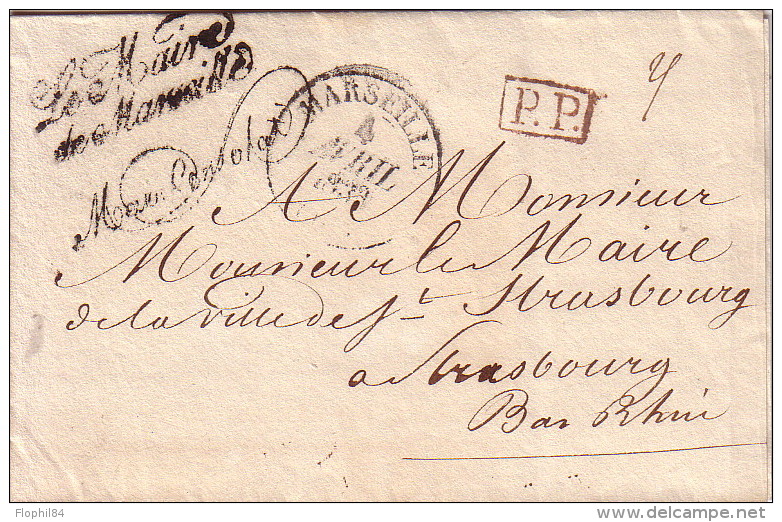 Le Maire
de Marseille
Max Consolat
MARSEILLE
4
AVRIL
P.P.
A Monsieur
Monsieur le Maire
de la Ville de St Strasbourg
a Strasbourg
Bas Rhin
Flophil84
delcampe.net